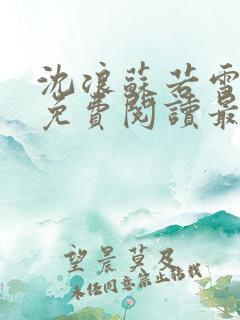 沈浪蘇若雪
免費閱讀最
望晨莫及
未經同意禁止轉載